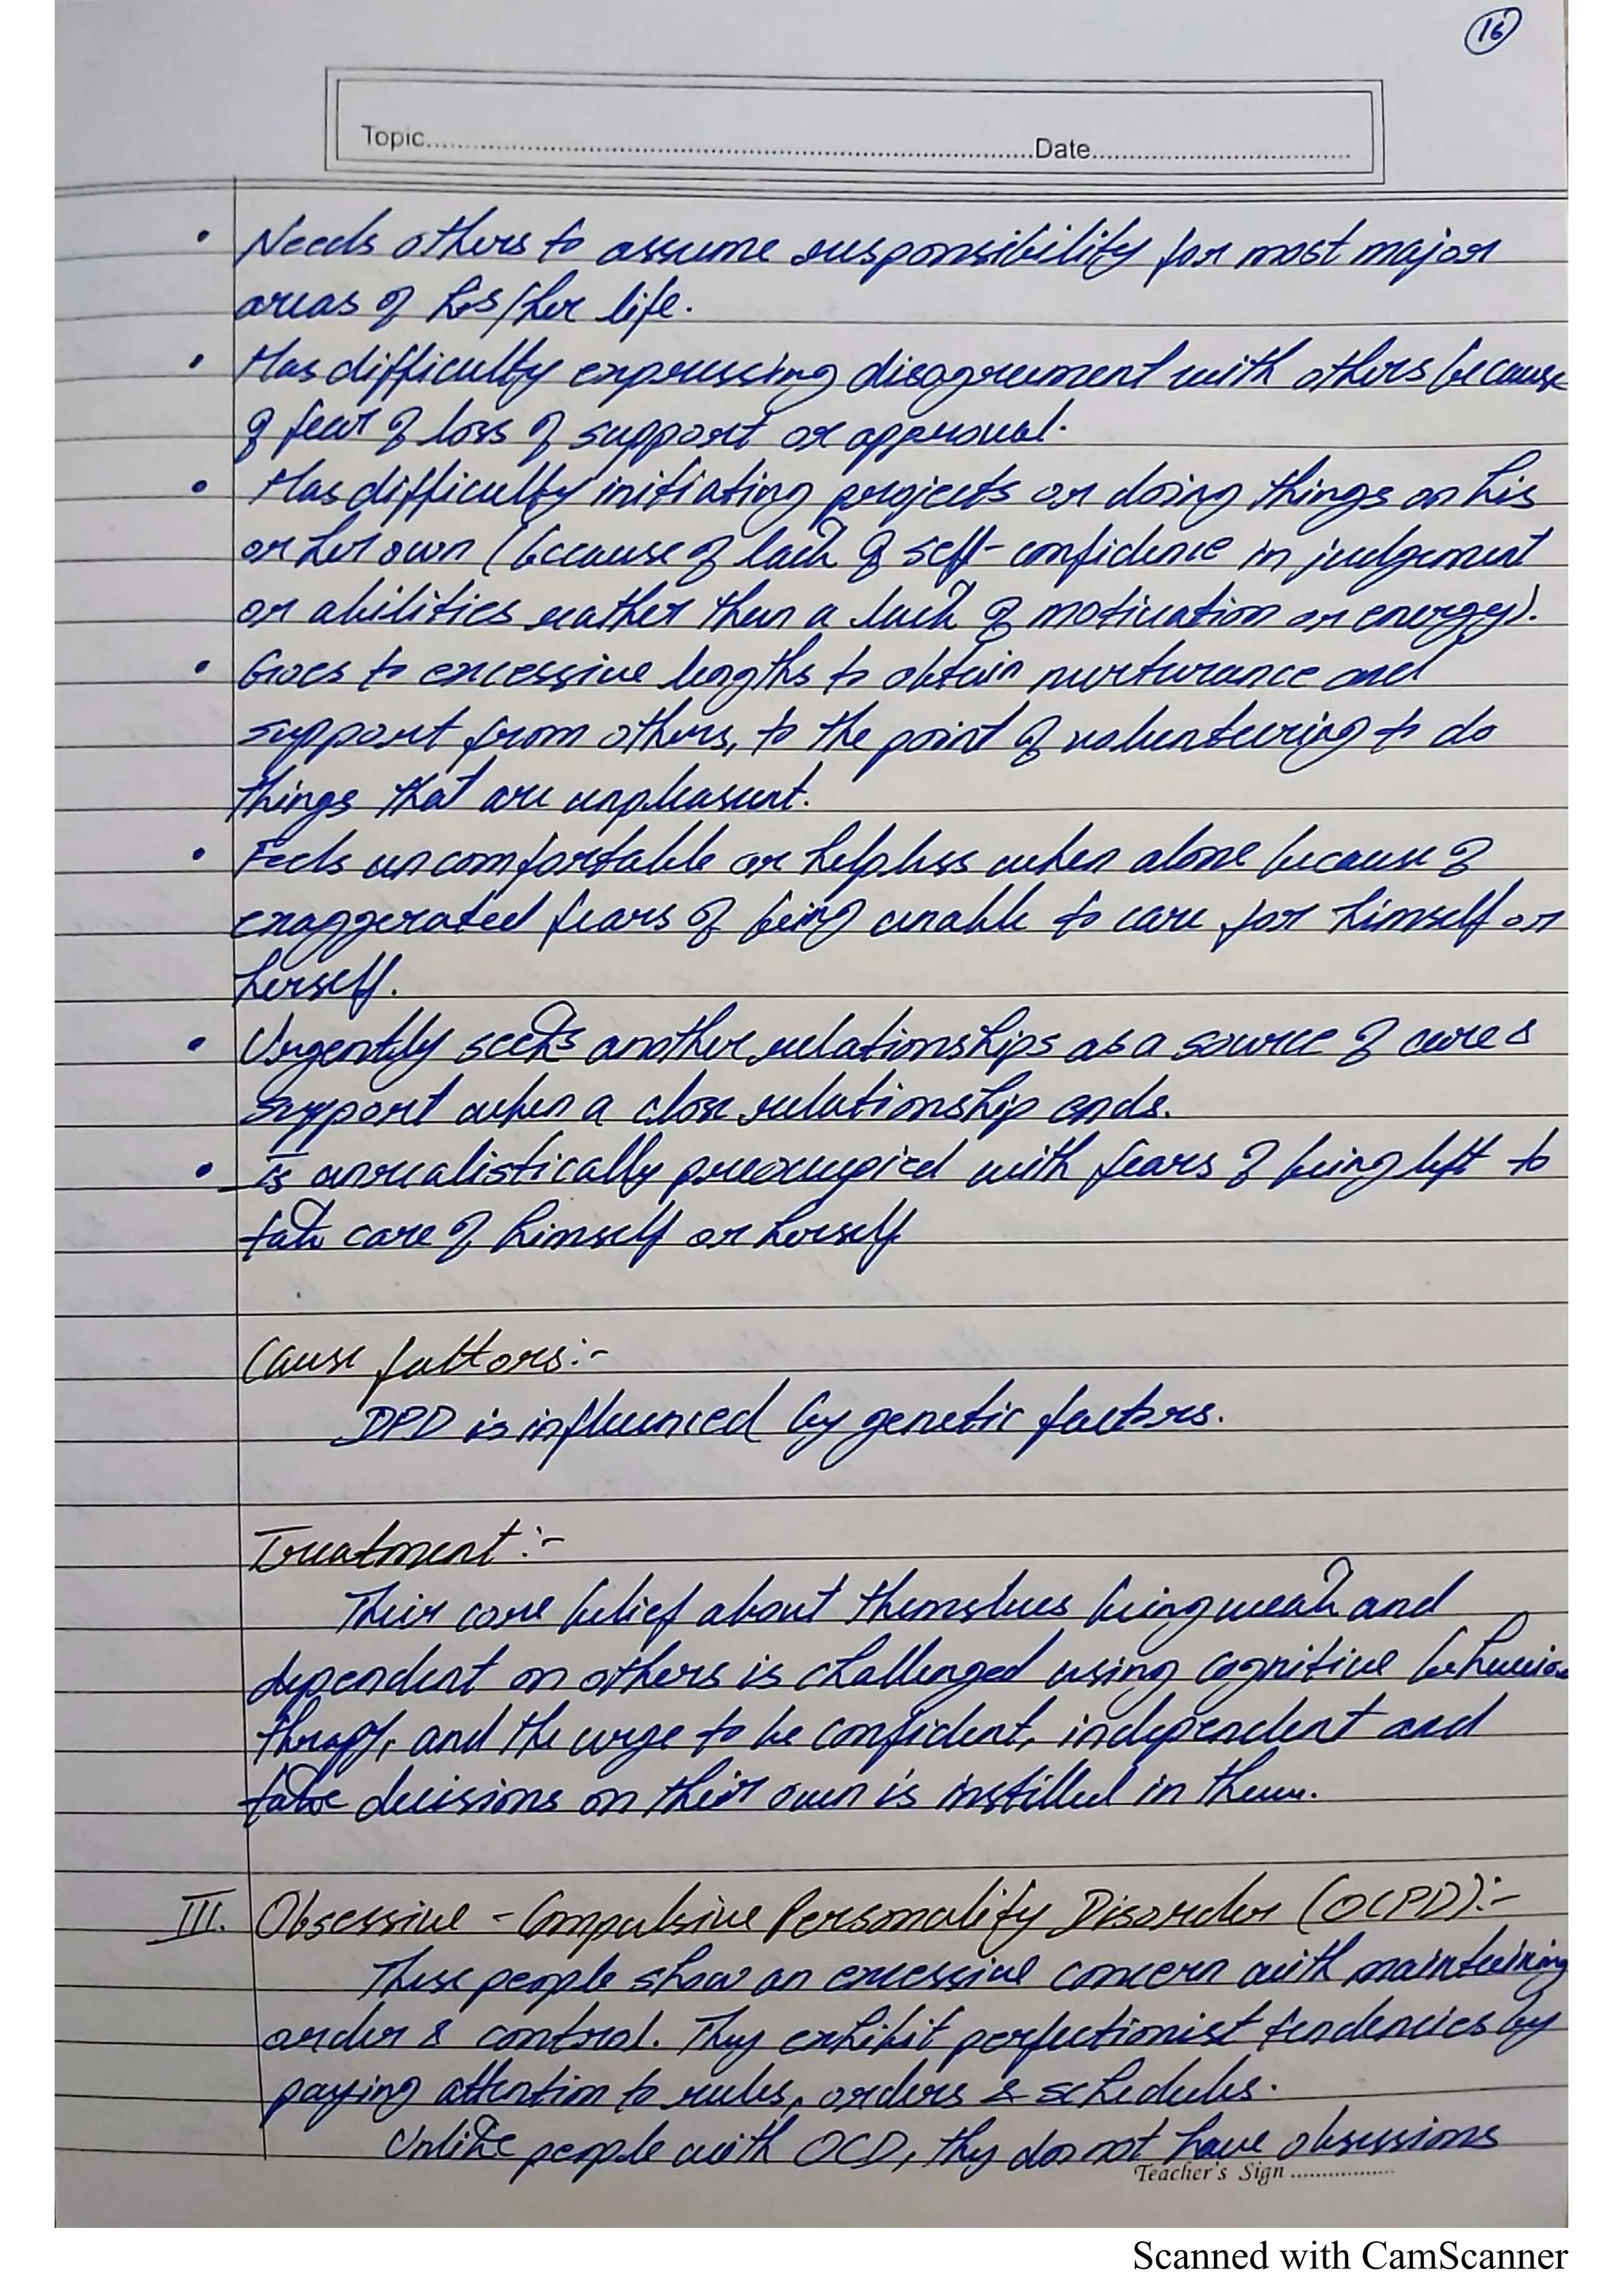 16
Topic..............................Date..............................
• Needs others to assume responsibility for most major
areas of his/her life.
• Has difficulty expressing disagreement with others because
of fear of loss of support or approval.
• Has difficulty initiating projects or doing things on his
or her own (because of lack of self-confidence in judgement
or abilities rather than a lack of motivation or energy).
• Goes to excessive lengths to obtain nurturance and
support from others, to the point of volunteering to do
things that are unpleasant.
• Feels uncomfortable or helpless when alone because of
exaggerated fears of being unable to care for himself or
herself.
• Urgently seeks another relationships as a source of care &
support when a close relationship ends.
• is unrealistically preoccupied with fears of being left to
take care of himself or herself
Cause fattors:-
DPD is influenced by genetic factors.
Treatment:-
Their core belief about themselves being weak and
dependent on others is challenged using cognitive behavior
therapy, and the urge to be confident, independent and
take decisions on their own is instilled in them.
III. Obsessive - Compulsive Personality Disorder (OCPD):-
These people show an excessive concern with maintaining
order & control. They exhibit perfectionist tendencies by
paying attention to rules, orders & schedules.
Unlike people with OCD, they do not have obsessions
Teacher's Sign ..................
Scanned with CamScanner